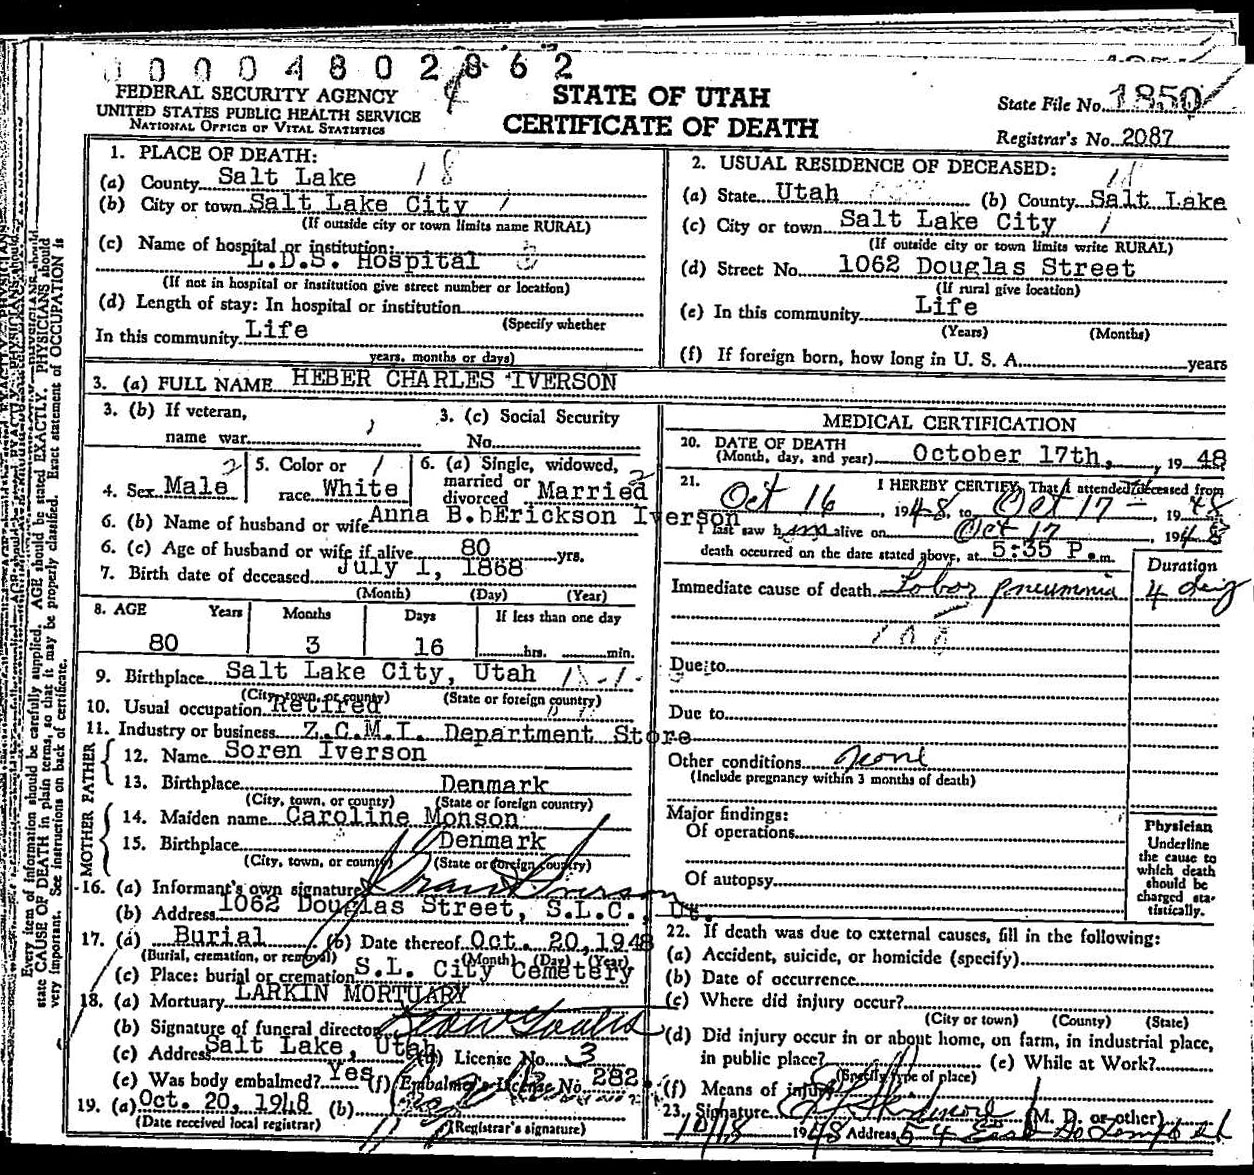 0 0 0 0 4 8 0 2 8 6 2
FEDERAL SECURITY AGENCY
UNITED STATES PUBLIC HEALTH SERVICE
NATIONAL OFFICE OF VITAL STATISTICS
STATE OF UTAH
CERTIFICATE OF DEATH
State File No. 1850
Registrar's No. 2087
1. PLACE OF DEATH:
(a) County Salt Lake 18
(b) City or town Salt Lake City 1
(If outside city or town limits name RURAL)
(c) Name of hospital or institution:
L.D.S. Hospital
(If not in hospital or institution give street number or location)
(d) Length of stay: In hospital or institution
(Specify whether
In this community Life
years, months or days)
2. USUAL RESIDENCE OF DECEASED:
(a) State Utah (b) County Salt Lake
(c) City or town Salt Lake City 1
(If outside city or town limits write RURAL)
(d) Street No. 1062 Douglas Street
(If rural give location)
(e) In this community Life
(Years) (Months)
(f) If foreign born, how long in U. S. A. years
3. (a) FULL NAME HEBER CHARLES IVERSON
3. (b) If veteran,
name war
3. (c) Social Security
No.
4. Sex Male 2
5. Color or 1
race White
6. (a) Single, widowed,
married or
divorced Married 2
6. (b) Name of husband or wife Anna B. bErickson Iverson
6. (c) Age of husband or wife if alive 80 yrs.
7. Birth date of deceased July 1, 1868
(Month) (Day) (Year)
8. AGE Years Months Days If less than one day
80 3 16 hrs. min.
9. Birthplace Salt Lake City, Utah
(City, town, or county) (State or foreign country)
10. Usual occupation Retired
11. Industry or business Z.C.M.I. Department Store
FATHER
12. Name Soren Iverson
13. Birthplace Denmark
(City, town, or county) (State or foreign country)
MOTHER
14. Maiden name Caroline Monson
15. Birthplace Denmark
(City, town, or county) (State or foreign country)
16. (a) Informant's own signature Grant Iverson
(b) Address 1062 Douglas Street, S.L.C., Ut.
17. (a) Burial (b) Date thereof Oct. 20, 1948
(Burial, cremation, or removal) (Month) (Day) (Year)
(c) Place: burial or cremation S.L. City Cemetery
18. (a) Mortuary LARKIN MORTUARY
(b) Signature of funeral director
(c) Address Salt Lake, Utah (d) License No. 3
(e) Was body embalmed? Yes (f) Embalmer's License No. 282
19. (a) Oct. 20, 1948 (b)
(Date received local registrar) (Registrar's signature)
MEDICAL CERTIFICATION
20. DATE OF DEATH
(Month, day, and year) October 17th, 1948
21. I HEREBY CERTIFY, That I attended deceased from
Oct 16, 1948, to Oct 17, 1948
I last saw him alive on Oct 17 1948
death occurred on the date stated above, at 5:35 P.m.
Duration
Immediate cause of death Lobar pneumonia 4 days
108
Due to
Due to
Other conditions none
(Include pregnancy within 3 months of death)
Major findings:
Of operations
Of autopsy
Physician
Underline
the cause to
which death
should be
charged sta-
tistically.
22. If death was due to external causes, fill in the following:
(a) Accident, suicide, or homicide (specify)
(b) Date of occurrence
(c) Where did injury occur?
(City or town) (County) (State)
(d) Did injury occur in or about home, on farm, in industrial place,
in public place? (e) While at Work?
(Specify type of place)
(f) Means of injury
23. Signature (M. D. or other)
10/18 1948 Address 54 East So Temple St
Every item of information should be carefully supplied. AGE should be stated EXACTLY. PHYSICIANS should
state CAUSE OF DEATH in plain terms, so that it may be properly classified. Exact statement of OCCUPATION is
very important. See instructions on back of certificate.